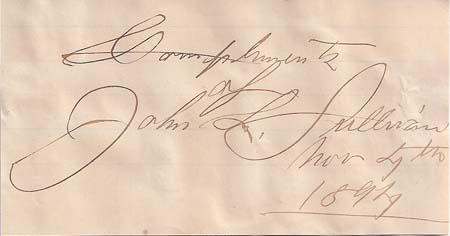 Compliments
of
John L. Sullivan
Nov 4th
1894